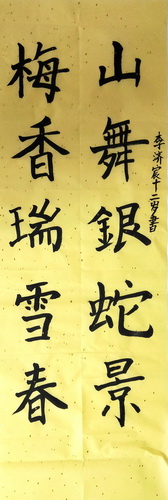 山舞銀蛇景
梅香瑞雪春
李济宸十二岁書